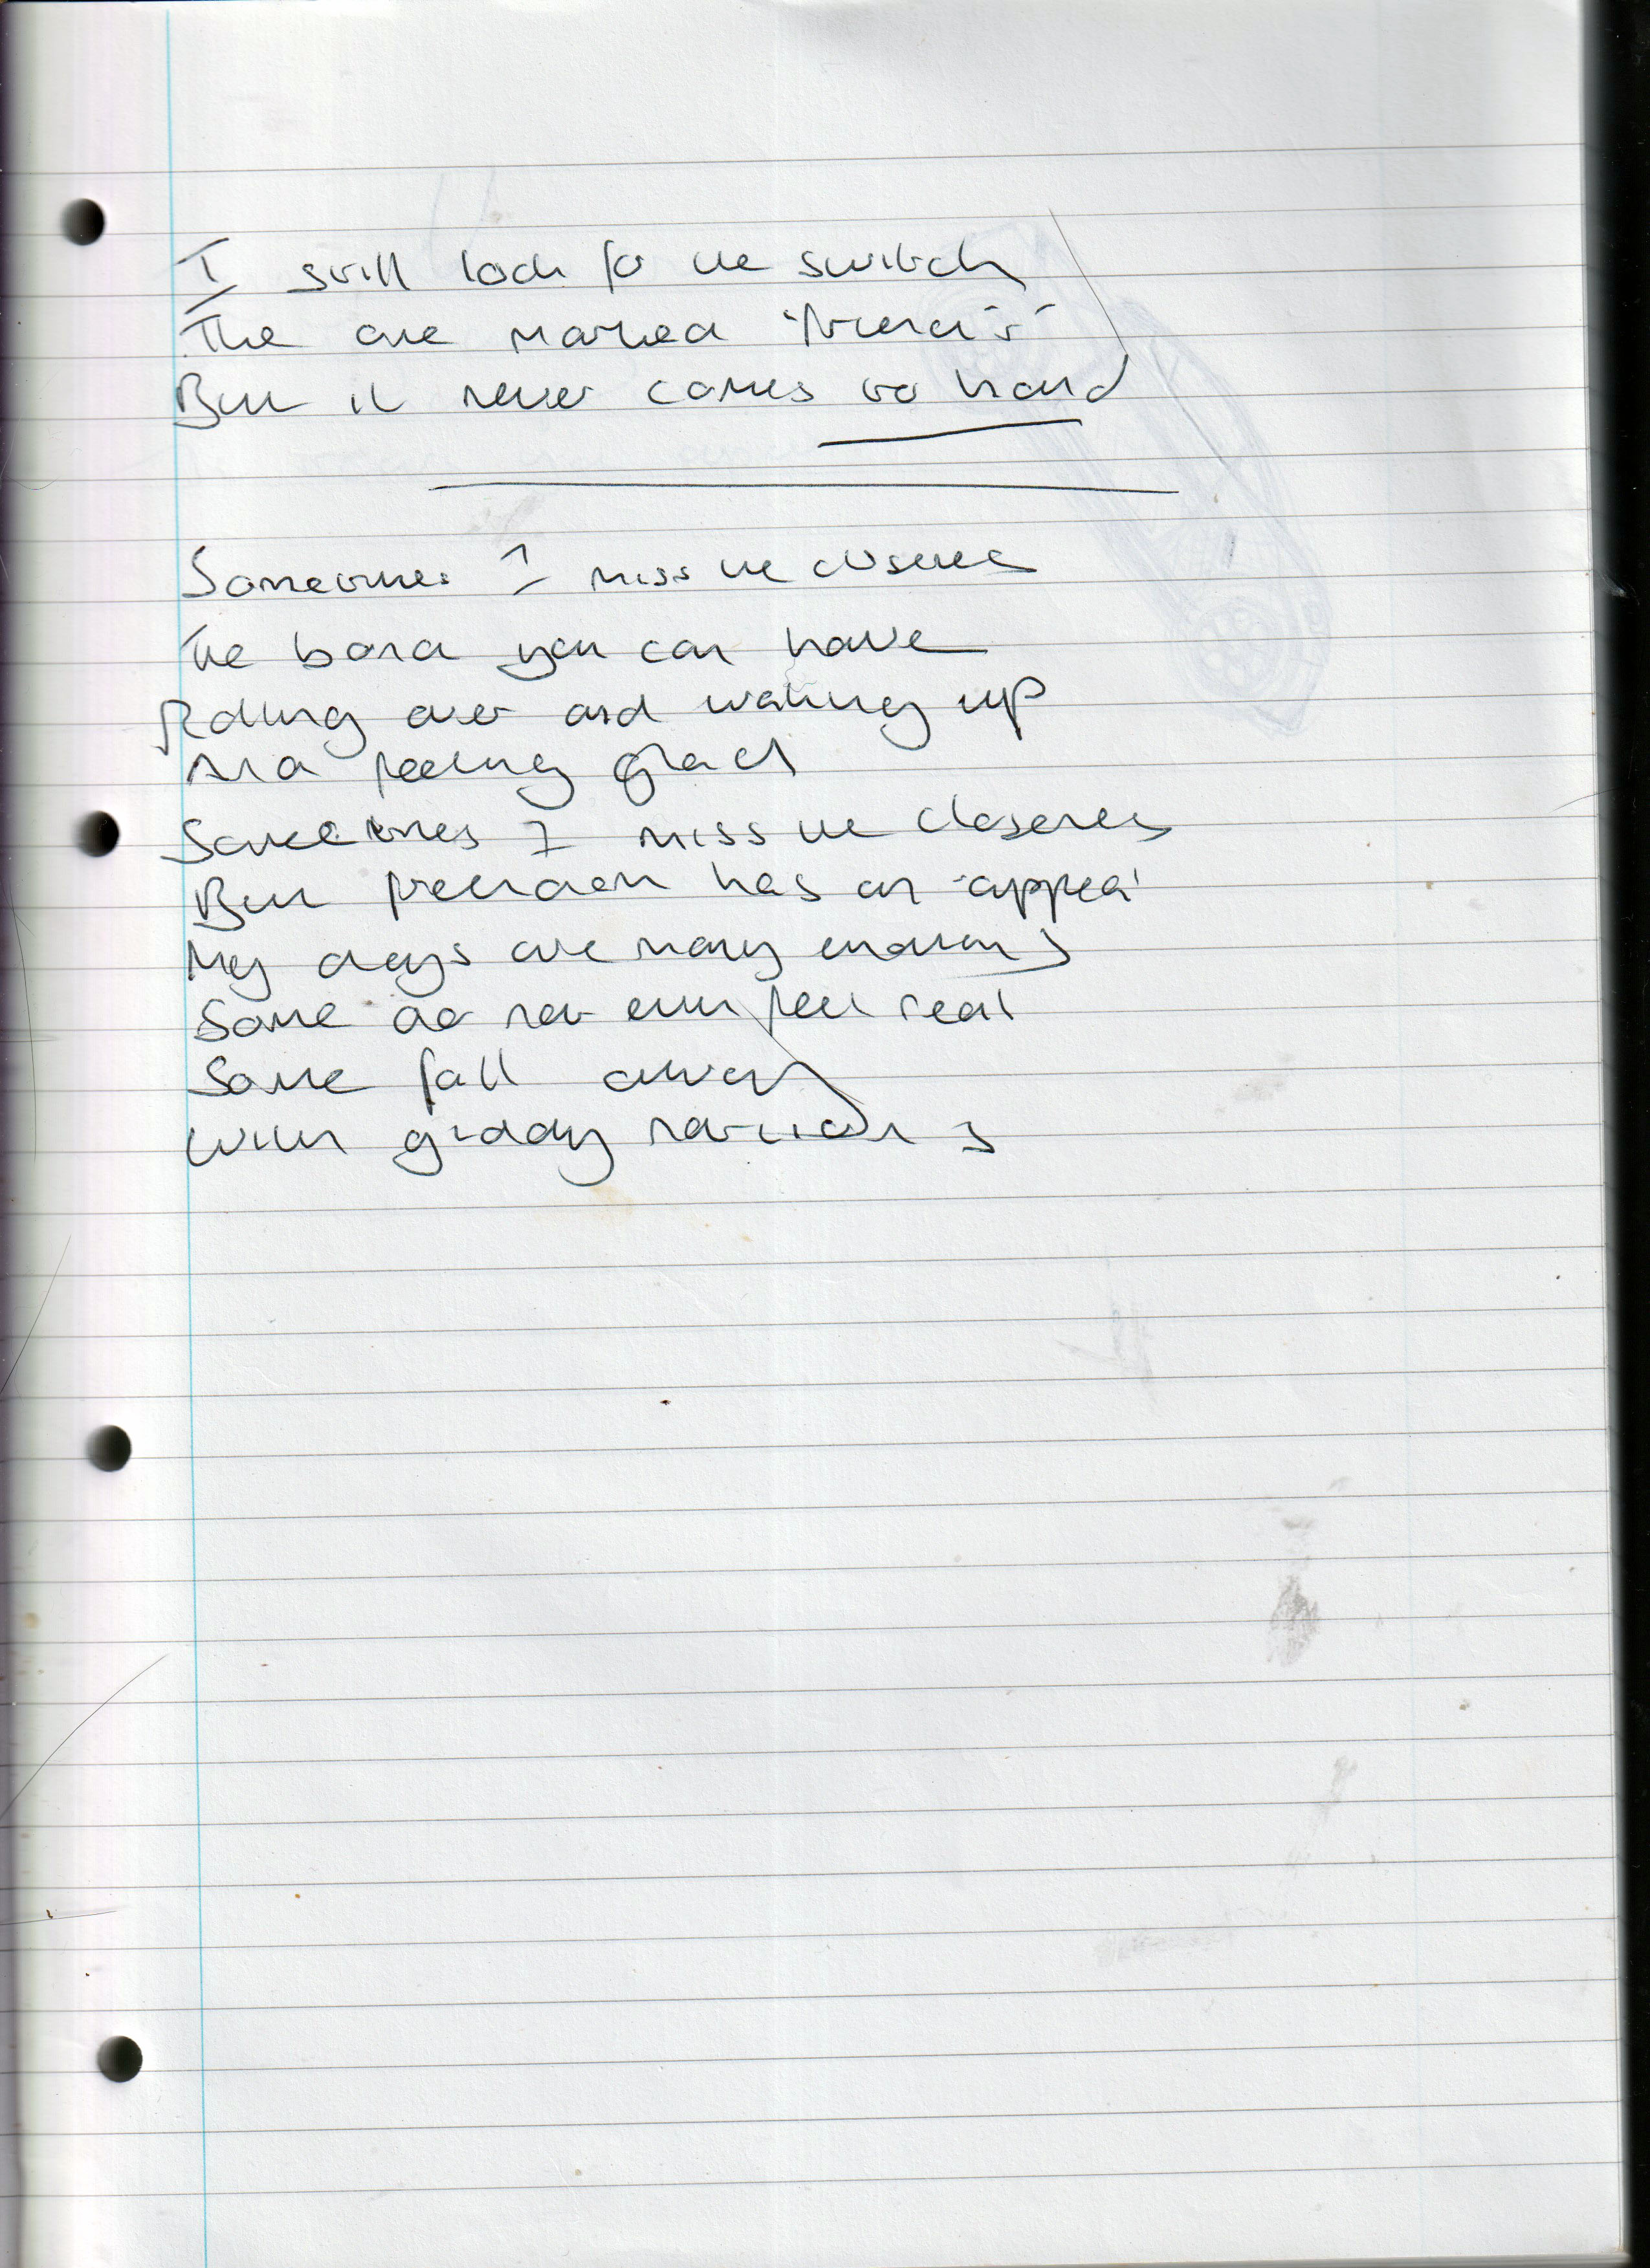 I still look for the switch
The one marked 'friends'
But it never comes to hand
Sometimes I miss the closeness
The bond you can have
Rolling over and waking up
And feeling glad
Sometimes I miss the closeness
But freedom has an appeal
My days are many
Some do not even feel real
Some fall away
With giddy